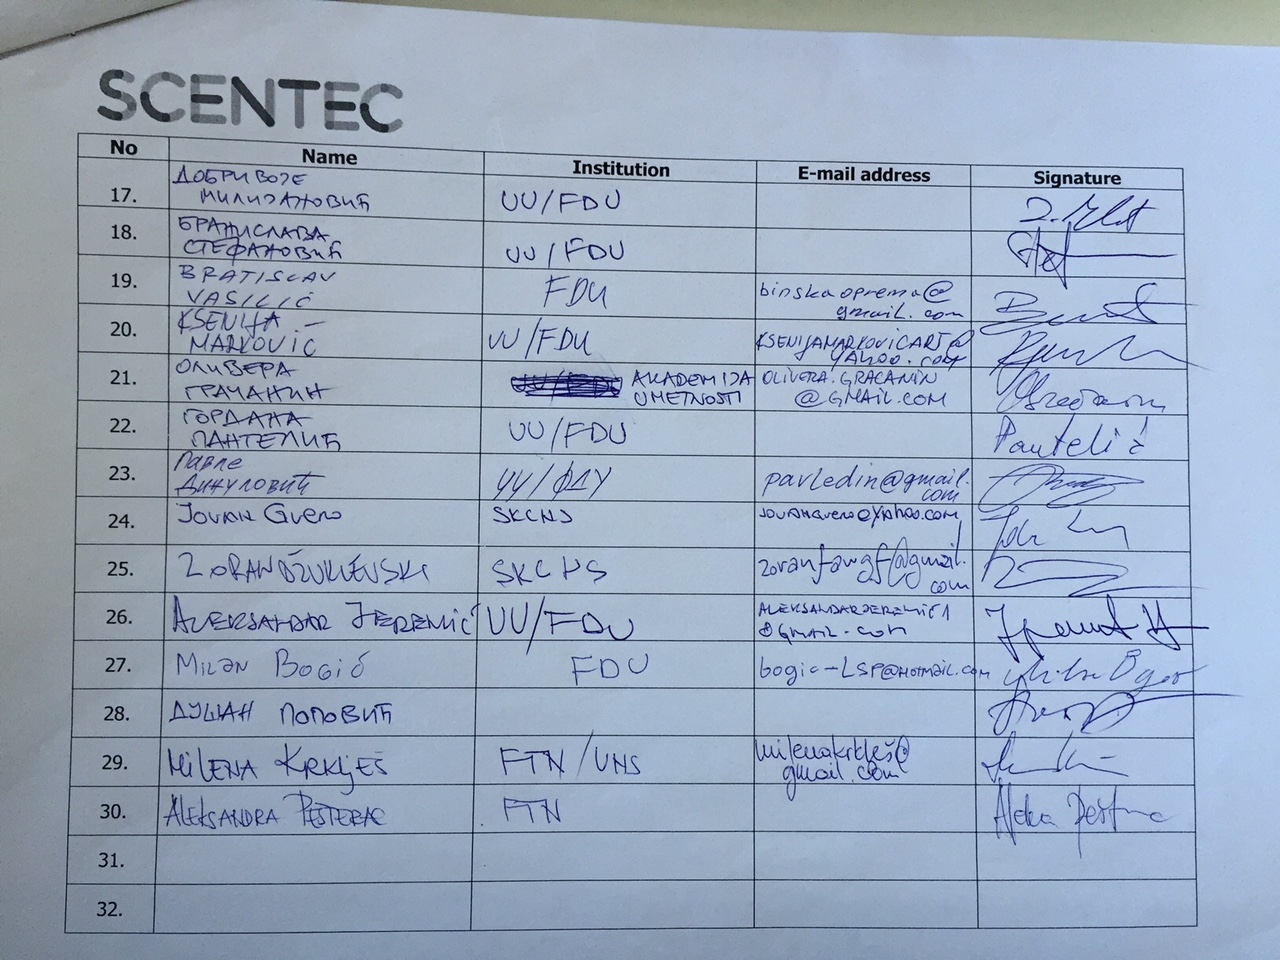 SCENTEC
No Name Institution E-mail address Signature
17. ДОБРИВОЈЕ
МИЛИЈАНОВИЋ UU/FDU
18. БРАНИСЛАВА
СТЕФАНОВИЋ UU/FDU
19. BRATISLAV
VASILIĆ FDU binskaoprema@
gmail.com
20. KSENIJA
MARKOVIĆ UU/FDU KSENIJAMARKOVICART@
YAHOO.COM
21. ОЛИВЕРА
ГРАЧАНИН AKADEMIJA
UMETNOSTI OLIVERA.GRACANIN
@GMAIL.COM
22. ГОРДАНА
ПАНТЕЛИЋ UU/FDU Pantelić
23. Павле
Динуловић УУ/ФДУ pavledin@gmail.
com
24. JOVAN GVERO SKCNS JOVANGVERO@YAHOO.COM
25. ZORAN DŽUKLEVSKI SKCNS zoranfangf@gmail.
com
26. ALEKSANDAR JEREMIĆ UU/FDU ALEKSANDARJEREMIC1
@GMAIL.COM
27. MILAN BOGIĆ FDU bogic-LSP@HOTMAIL.COM
28. ДУШАН ПОПОВИЋ
29. MILENA KRKLJEŠ FTN/UNS milenakrkljes@
gmail.com
30. ALEKSANDRA PEŠTERAC FTN
31.
32.